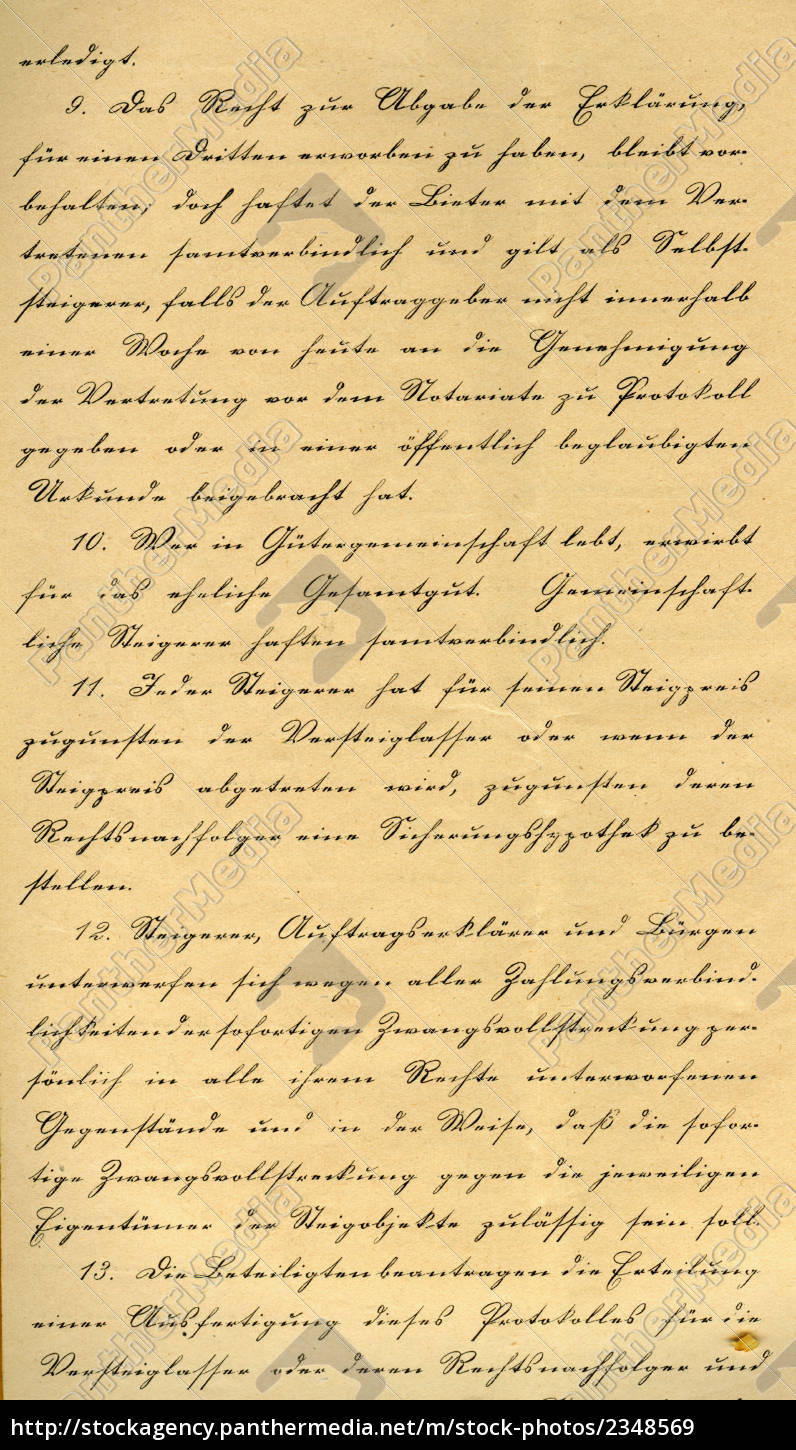 erledigt.
9. Das Recht zur Abgabe der Erklärung,
für einen Dritten erworben zu haben, bleibt vor-
behalten; doch haftet der Bieter mit dem Ver-
tretenen samtverbindlich und gilt als Selbst-
steigerer, falls der Auftraggeber nicht innerhalb
einer Woche von heute an die Genehmigung
der Vertretung vor dem Notariate zu Protokoll
gegeben oder in einer öffentlich beglaubigten
Urkunde beigebracht hat.
10. Wer in Gütergemeinschaft lebt, erwirbt
für das eheliche Gesamtgut. Gemeinschaft-
liche Steigerer haften samtverbindlich.
11. Jeder Steigerer hat für seinen Steigpreis
zugunsten der Versteiglasser oder wenn der
Steigpreis abgetreten wird, zugunsten deren
Rechtsnachfolger eine Sicherungshypothek zu be-
stellen.
12. Steigerer, Auftragserklärer und Bürgen
unterwerfen sich wegen aller Zahlungsverbind-
lichkeiten der sofortigen Zwangsvollstreckung per-
sönlich in alle ihrem Rechte unterworfenen
Gegenstände und in der Weise, daß die sofor-
tige Zwangsvollstreckung gegen die jeweiligen
Eigentümer der Steigobjekte zulässig sein soll.
13. Die Beteiligten beantragen die Erteilung
einer Ausfertigung dieses Protokolles für die
Versteiglasser oder deren Rechtsnachfolger und
PantherMedia
http://stockagency.panthermedia.net/m/stock-photos/2348569